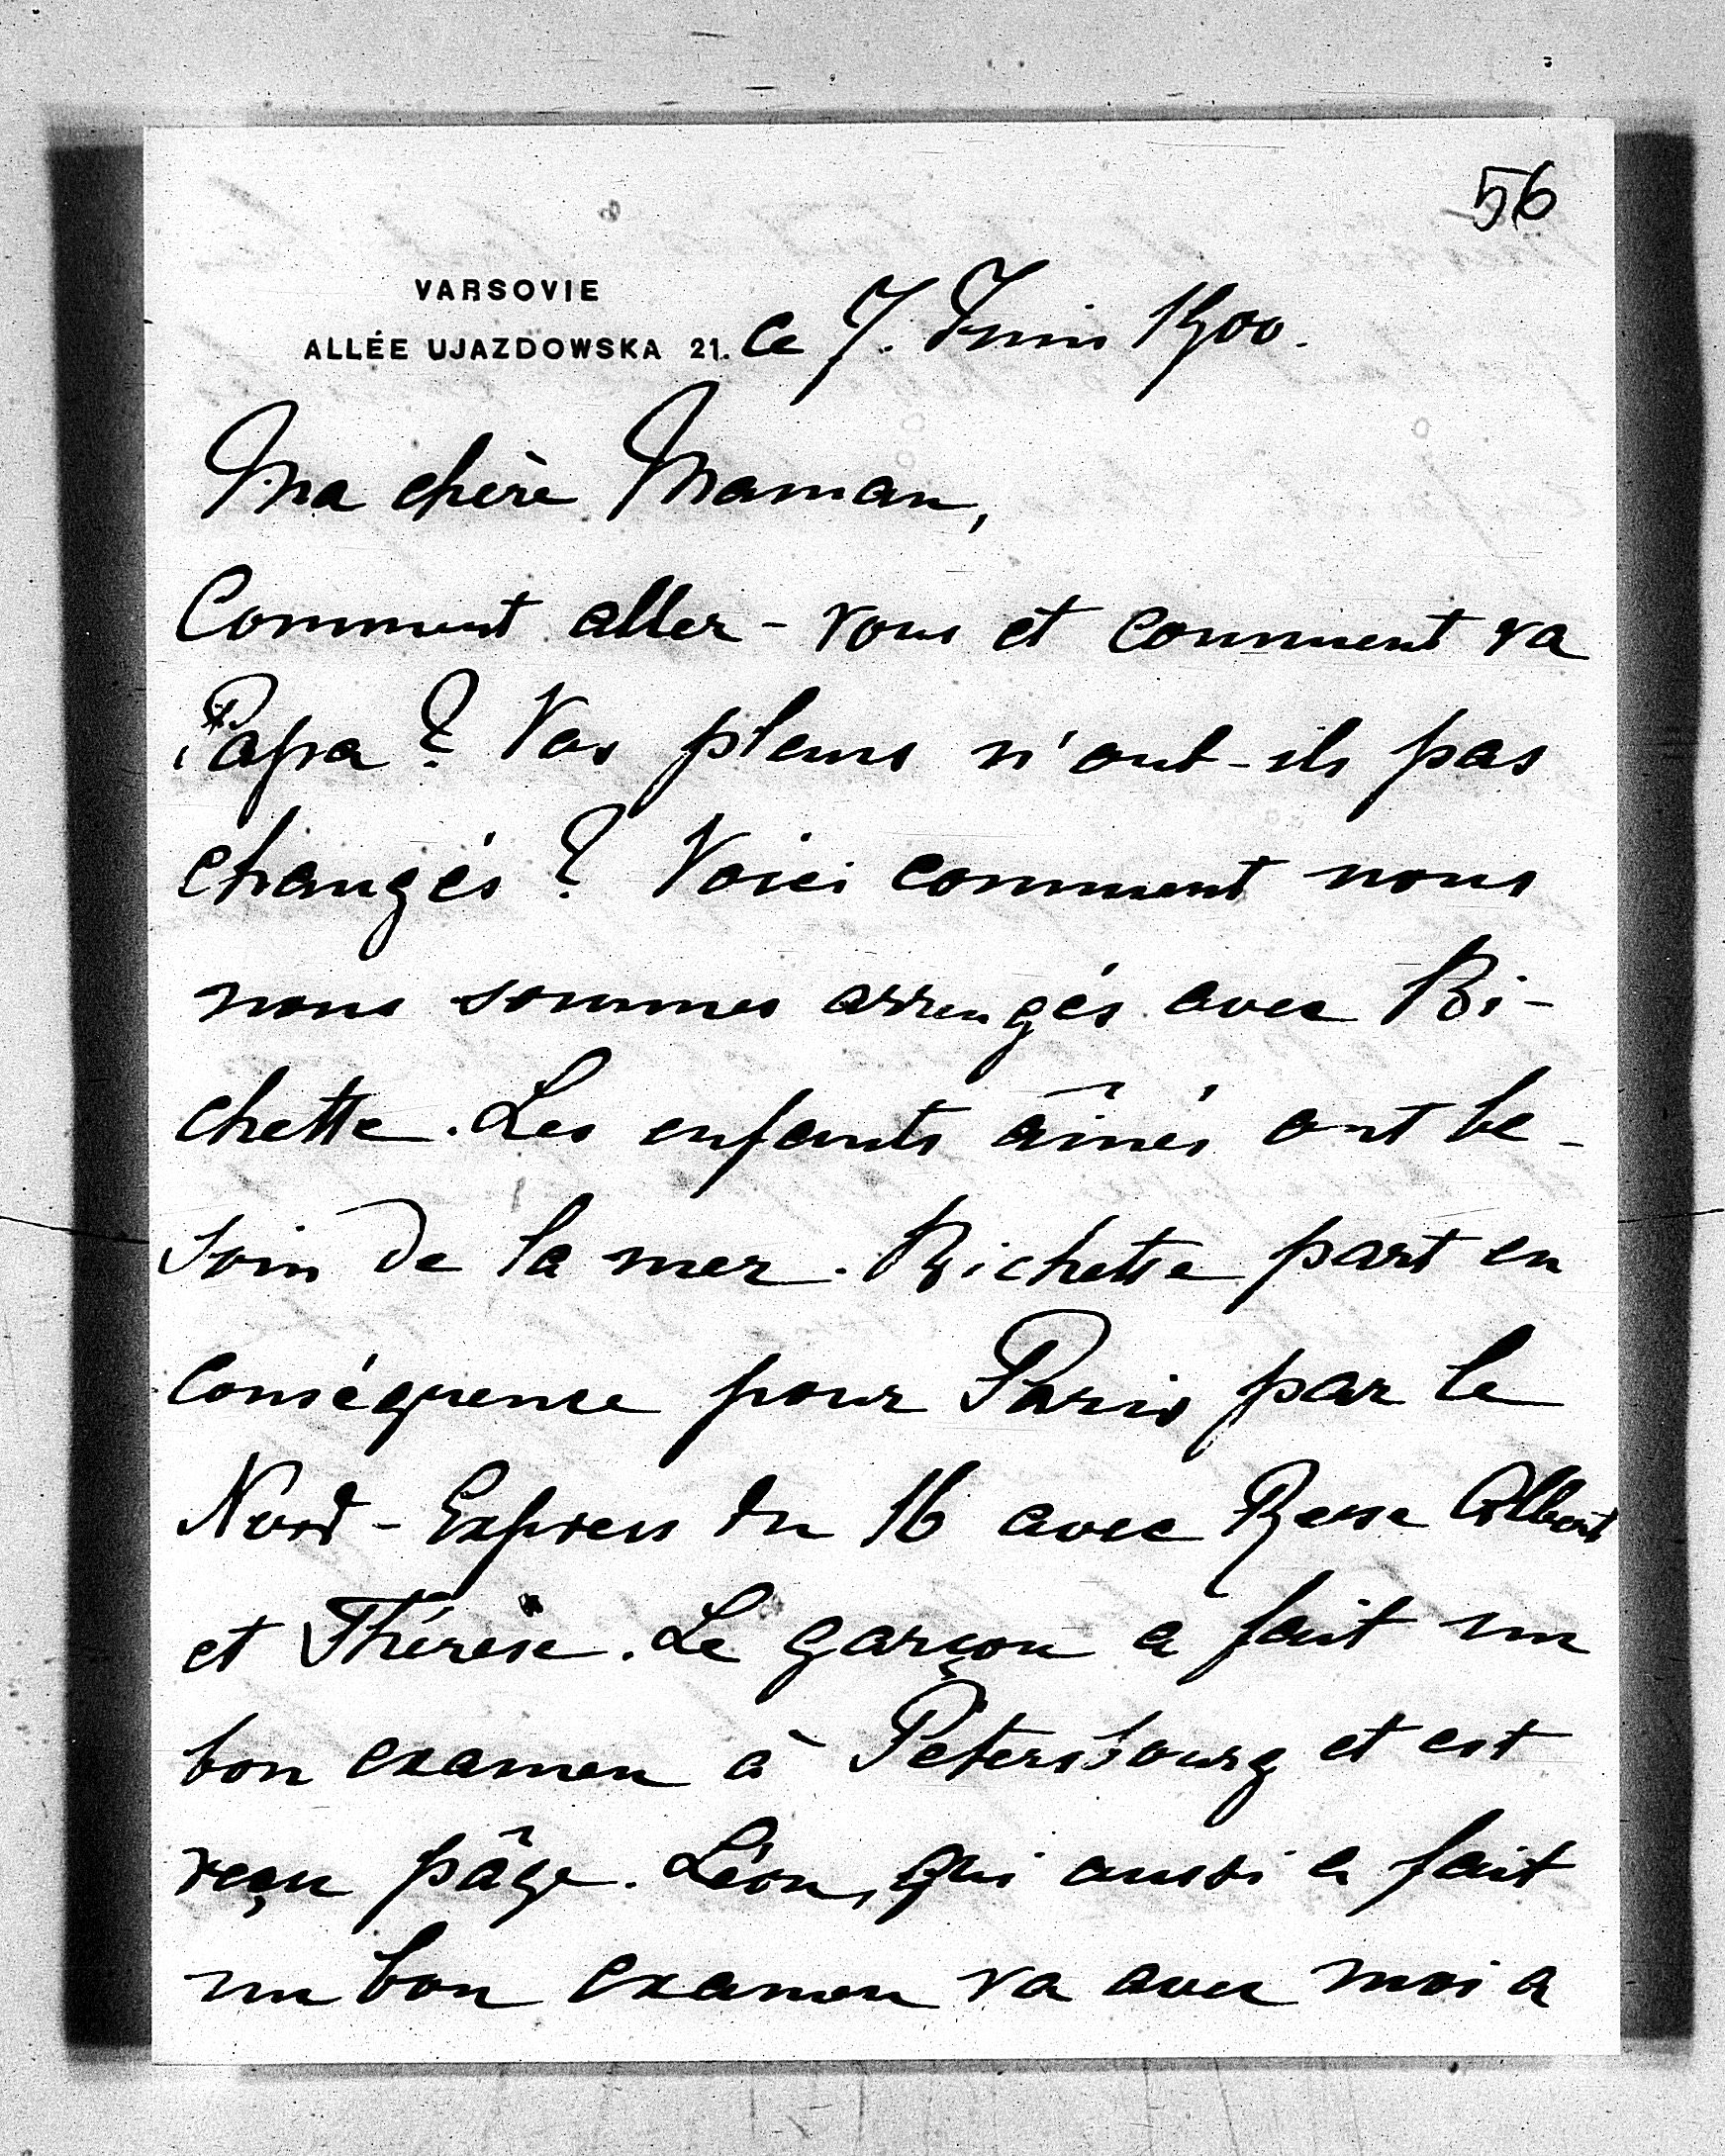 56
VARSOVIE
ALLÉE UJAZDOWSKA 21. le 7. Juin 1900.
Ma chère Maman,
Comment allez-vous et comment va
Papa ? Vos plans n'ont-ils pas
changés ? Voici comment nous
nous sommes arrangés avec Bi-
chette. Les enfants âinés ont be-
soin de la mer. Bichette part en
conséquence pour Paris par le
Nord-Express du 16 avec Albert
et Thérèse. Le garçon a fait un
bon examen à Petersbourg et est
reçu pâge. Léon, qui aussi a fait
un bon examen va avec moi a